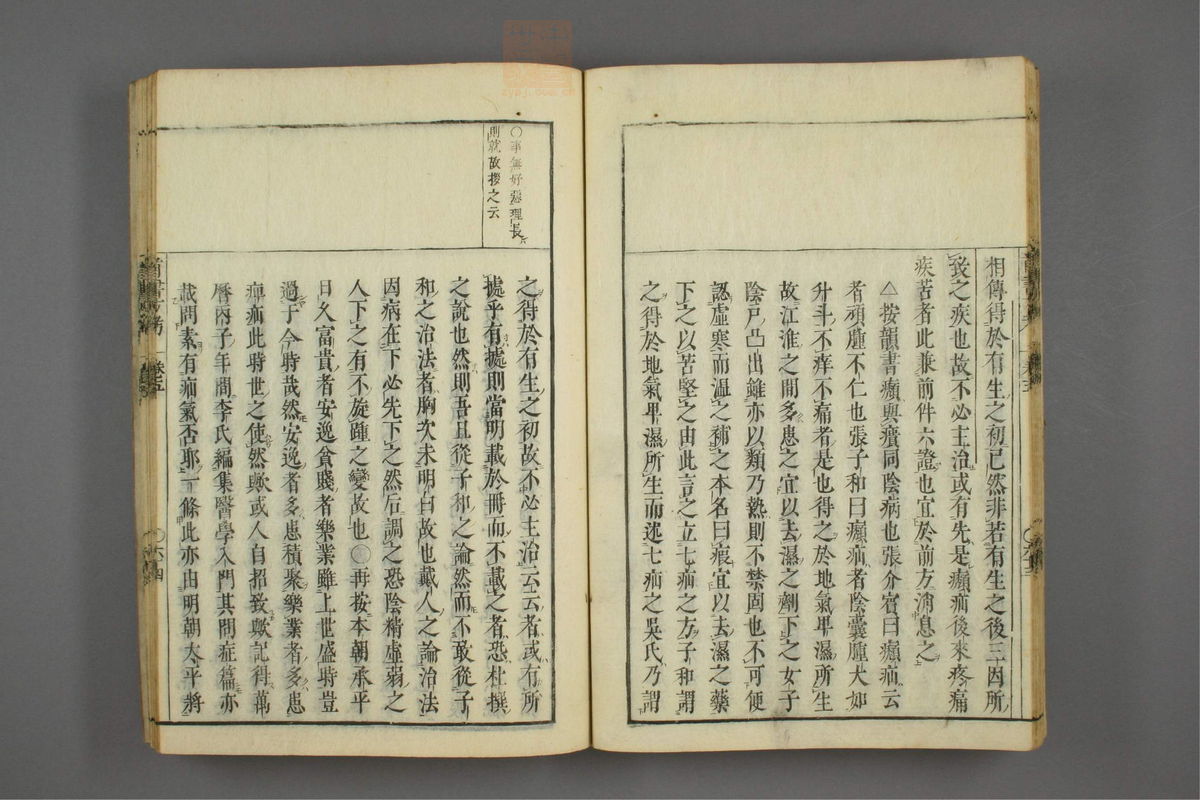 相傳得於有生之初已然非若有生之後三因所
致之疾也故不必主治或有先是癲疝後來疼痛
疾苦者此兼前件六證也宜於前方消息之
△按韻書癲與㿗同陰病也張介賓曰癲疝云
者頑腫不仁也張子和曰癲疝者陰囊腫大如
升斗不痒不痛者是也得之於地氣卑濕所生
故江淮之間多患之宜以去濕之劑下之女子
陰戶凸出雖亦以類乃熱則不禁固也不可便
認虛寒而溫之補之本名曰瘕宜以去濕之藥
下之以苦堅之由此言之立七疝之方子和謂
之得於地氣卑濕所生而述七疝之吳氏乃謂
○事無好惡理長
則就故拶之云
之得於有生之初故不必主治云云者或有所
據乎有據則當明載於冊而不載之者恐杜撰
之說也然則吾且從子和之論然而不敢從子
和之治法者胸次未明白故也戴人之論治法
因病在下必先下之然后調之恐陰精虛弱之
人下之有不旋踵之變故也○再按本朝承平
日久富貴者安逸貧賤者樂業雖上世盛時豈
過于今時哉然安逸者多患積聚樂業者多患
疝此時世之使然歟或人自招致歟記得萬
曆丙子年間李氏編集醫學入門其問症篇亦
載問素有疝氣否耶一條此亦由明朝太平將
卷五
○六十四